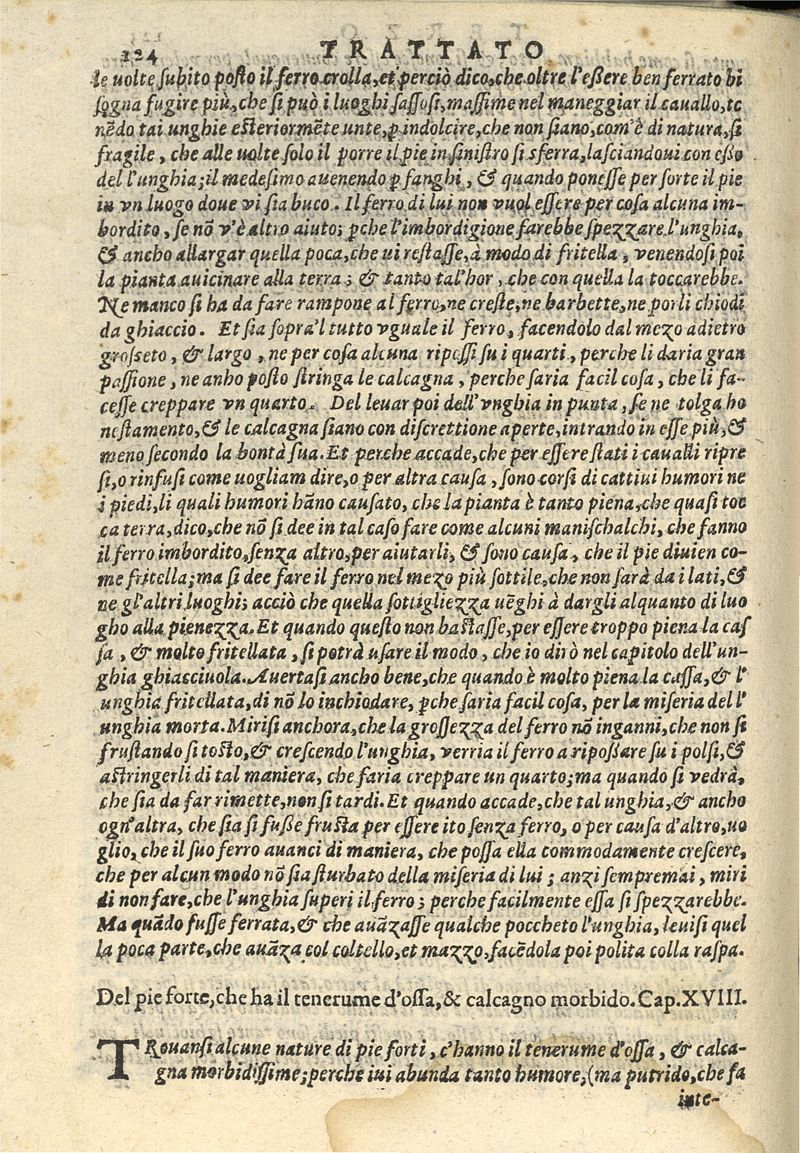 124 TRATTATO
le uolte subito posto il ferro crolla, et perciò dico, che oltre l'eßere ben ferrato bi
sogna fugire più, che si può i luoghi sassosi, massime nel maneggiar il cauallo, te
nẽdo tai unghie esteriormẽte unte, p indolcire, che non siano, com'è di natura, sì
fragile, che alle uolte solo il porre il pie in sinistro si sferra, lasciandoui con eßo
del l'unghia; il medesimo auenendo p fanghi, & quando ponesse per sorte il pie
in vn luogo doue vi sia buco. Il ferro di lui non vuol essere per cosa alcuna im-
bordito, se nõ v'è altro aiuto; pche l'imbordigione farebbe spezzare l'unghia,
& ancho allargar quella poca, che ui restasse, à modo di fritella, venendosi poi
la pianta auicinare alla terra; & tanto tal'hor, che con quella la toccarebbe.
Ne manco si ha da fare rampone al ferro, ne creste, ne barbette, ne porli chiodi
da ghiaccio. Et sia sopra'l tutto vguale il ferro, facendolo dal mezo adietro
grosseto, & largo, ne per cosa alcuna ripossi su i quarti, perche li daria gran
passione, ne anho posto stringa le calcagna, perche saria facil cosa, che li fa-
cesse creppare vn quarto. Del leuar poi dell'vnghia in punta, se ne tolga ho
nestamento, & le calcagna siano con discrettione aperte, intrando in esse più, &
meno secondo la bontà sua. Et perche accade, che per essere stati i caualli ripre
si, o rinfusi come uogliam dire, o per altra causa, sono corsi di cattiui humori ne
i piedi, li quali humori hãno causato, che la pianta è tanto piena, che quasi toc
ca terra, dico, che nõ si dee in tal caso fare come alcuni manischalchi, che fanno
il ferro imbordito, senza altro, per aiutarli, & sono causa, che il pie diuien co-
me fritella; ma si dee fare il ferro nel mezo più sottile, che non sarà da i lati, &
ne gl'altri luoghi; acciò che quella sottigliezza uẽghi à dargli alquanto di luo
gho alla pienezza. Et quando questo non bastasse, per essere troppo piena la cas
sa, & molto fritellata, si potrà usare il modo, che io dirò nel capitolo dell'un-
ghia ghiacciuola. Auertasi ancho bene, che quando è molto piena la cassa, & l'
unghia fritellata, di nõ lo inchiodare, pche saria facil cosa, per la miseria del l'
unghia morta. Mirisi anchora, che la grossezza del ferro nõ inganni, che non si
frustando si tosto, & crescendo l'unghia, verria il ferro a ripoßare su i polsi, &
astringerli di tal maniera, che faria creppare un quarto; ma quando si vedrà,
che sia da far rimette, non si tardi. Et quando accade, che tal unghia, & ancho
ogn'altra, che sia si fuße frusta per essere ito senza ferro, o per causa d'altro, uo
glio, che il suo ferro auanci di maniera, che possa ella commodamente crescere,
che per alcun modo nõ sia sturbato della miseria di lui; anzi sempremai, miri
di non fare, che l'unghia superi il ferro; perche facilmente essa si spezzarebbe.
Ma quãdo fusse ferrata, & che auãzasse qualche poccheto l'unghia, leuisi quel
la poca parte, che auãza col coltello, et mazzo, facẽdola poi polita colla raspa.
Del pie forte, che ha il tenerume d'ossa, & calcagno morbido. Cap. XVIII.
TRouansi alcune nature di pie forti, c'hanno il tenerume d'ossa, & calca-
gna morbidissime; perche iui abunda tanto humore, (ma putrido, che fa
inte-